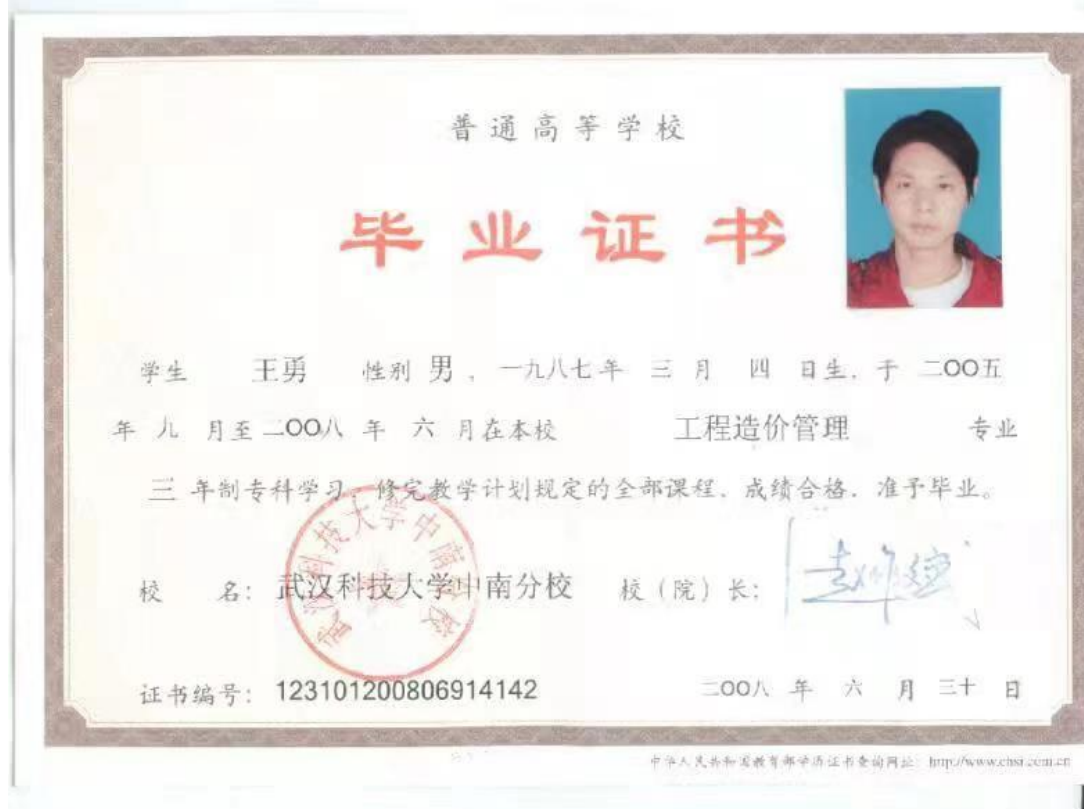 普通高等学校
毕业证书
学生 王勇 性别 男，一九八七年 三 月 四 日生，于 二OO五
年 九 月至 二OO八 年 六 月在本校 工程造价管理 专业
三 年制专科学习，修完教学计划规定的全部课程，成绩合格，准予毕业。
武汉科技大学中南分校
校 名：武汉科技大学中南分校 校（院）长：
证书编号：123101200806914142 二OO八 年 六 月 三十 日
中华人民共和国教育部学历证书查询网址 http://www.chsi.com.cn